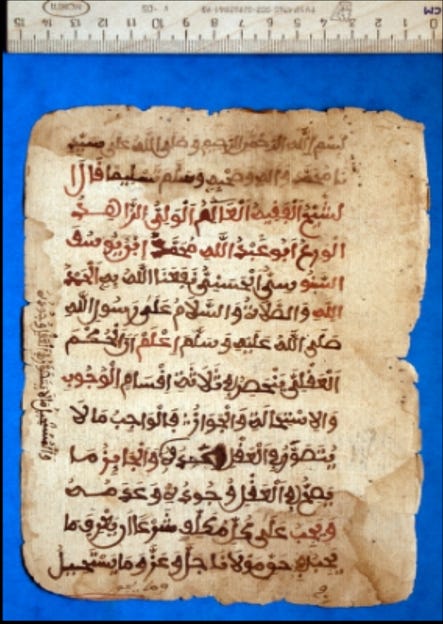 بسم الله الرحمن الرحيم وصلى الله على سيد
نا محمد واله وصحبه وسلم تسليما قال
الشيخ الفقيه العالم الولي الزاهد
الورع ابو عبد الله محمد ابن يوسف
السنوسي الحسني نفعنا الله به الحمد
لله والصلاة والسلام على رسول الله
صلى الله عليه وسلم اعلم ان الحكم
العقلي ينحصر في ثلاثة اقسام الوجوب
والاستحالة والجواز فالواجب ما لا
يتصور في العقل والجائز ما
يصح في العقل وجوده وعدمه
ويجب على كل مكلف شرعا ان يعرف ما
يجب في حق مولانا جل وعز وما يستحيل
والمستحيل ما لا يتصور في العقل وجوده
CM
0 1 2 3 4 5 6 7 8 9 10 11 12 13 14 15